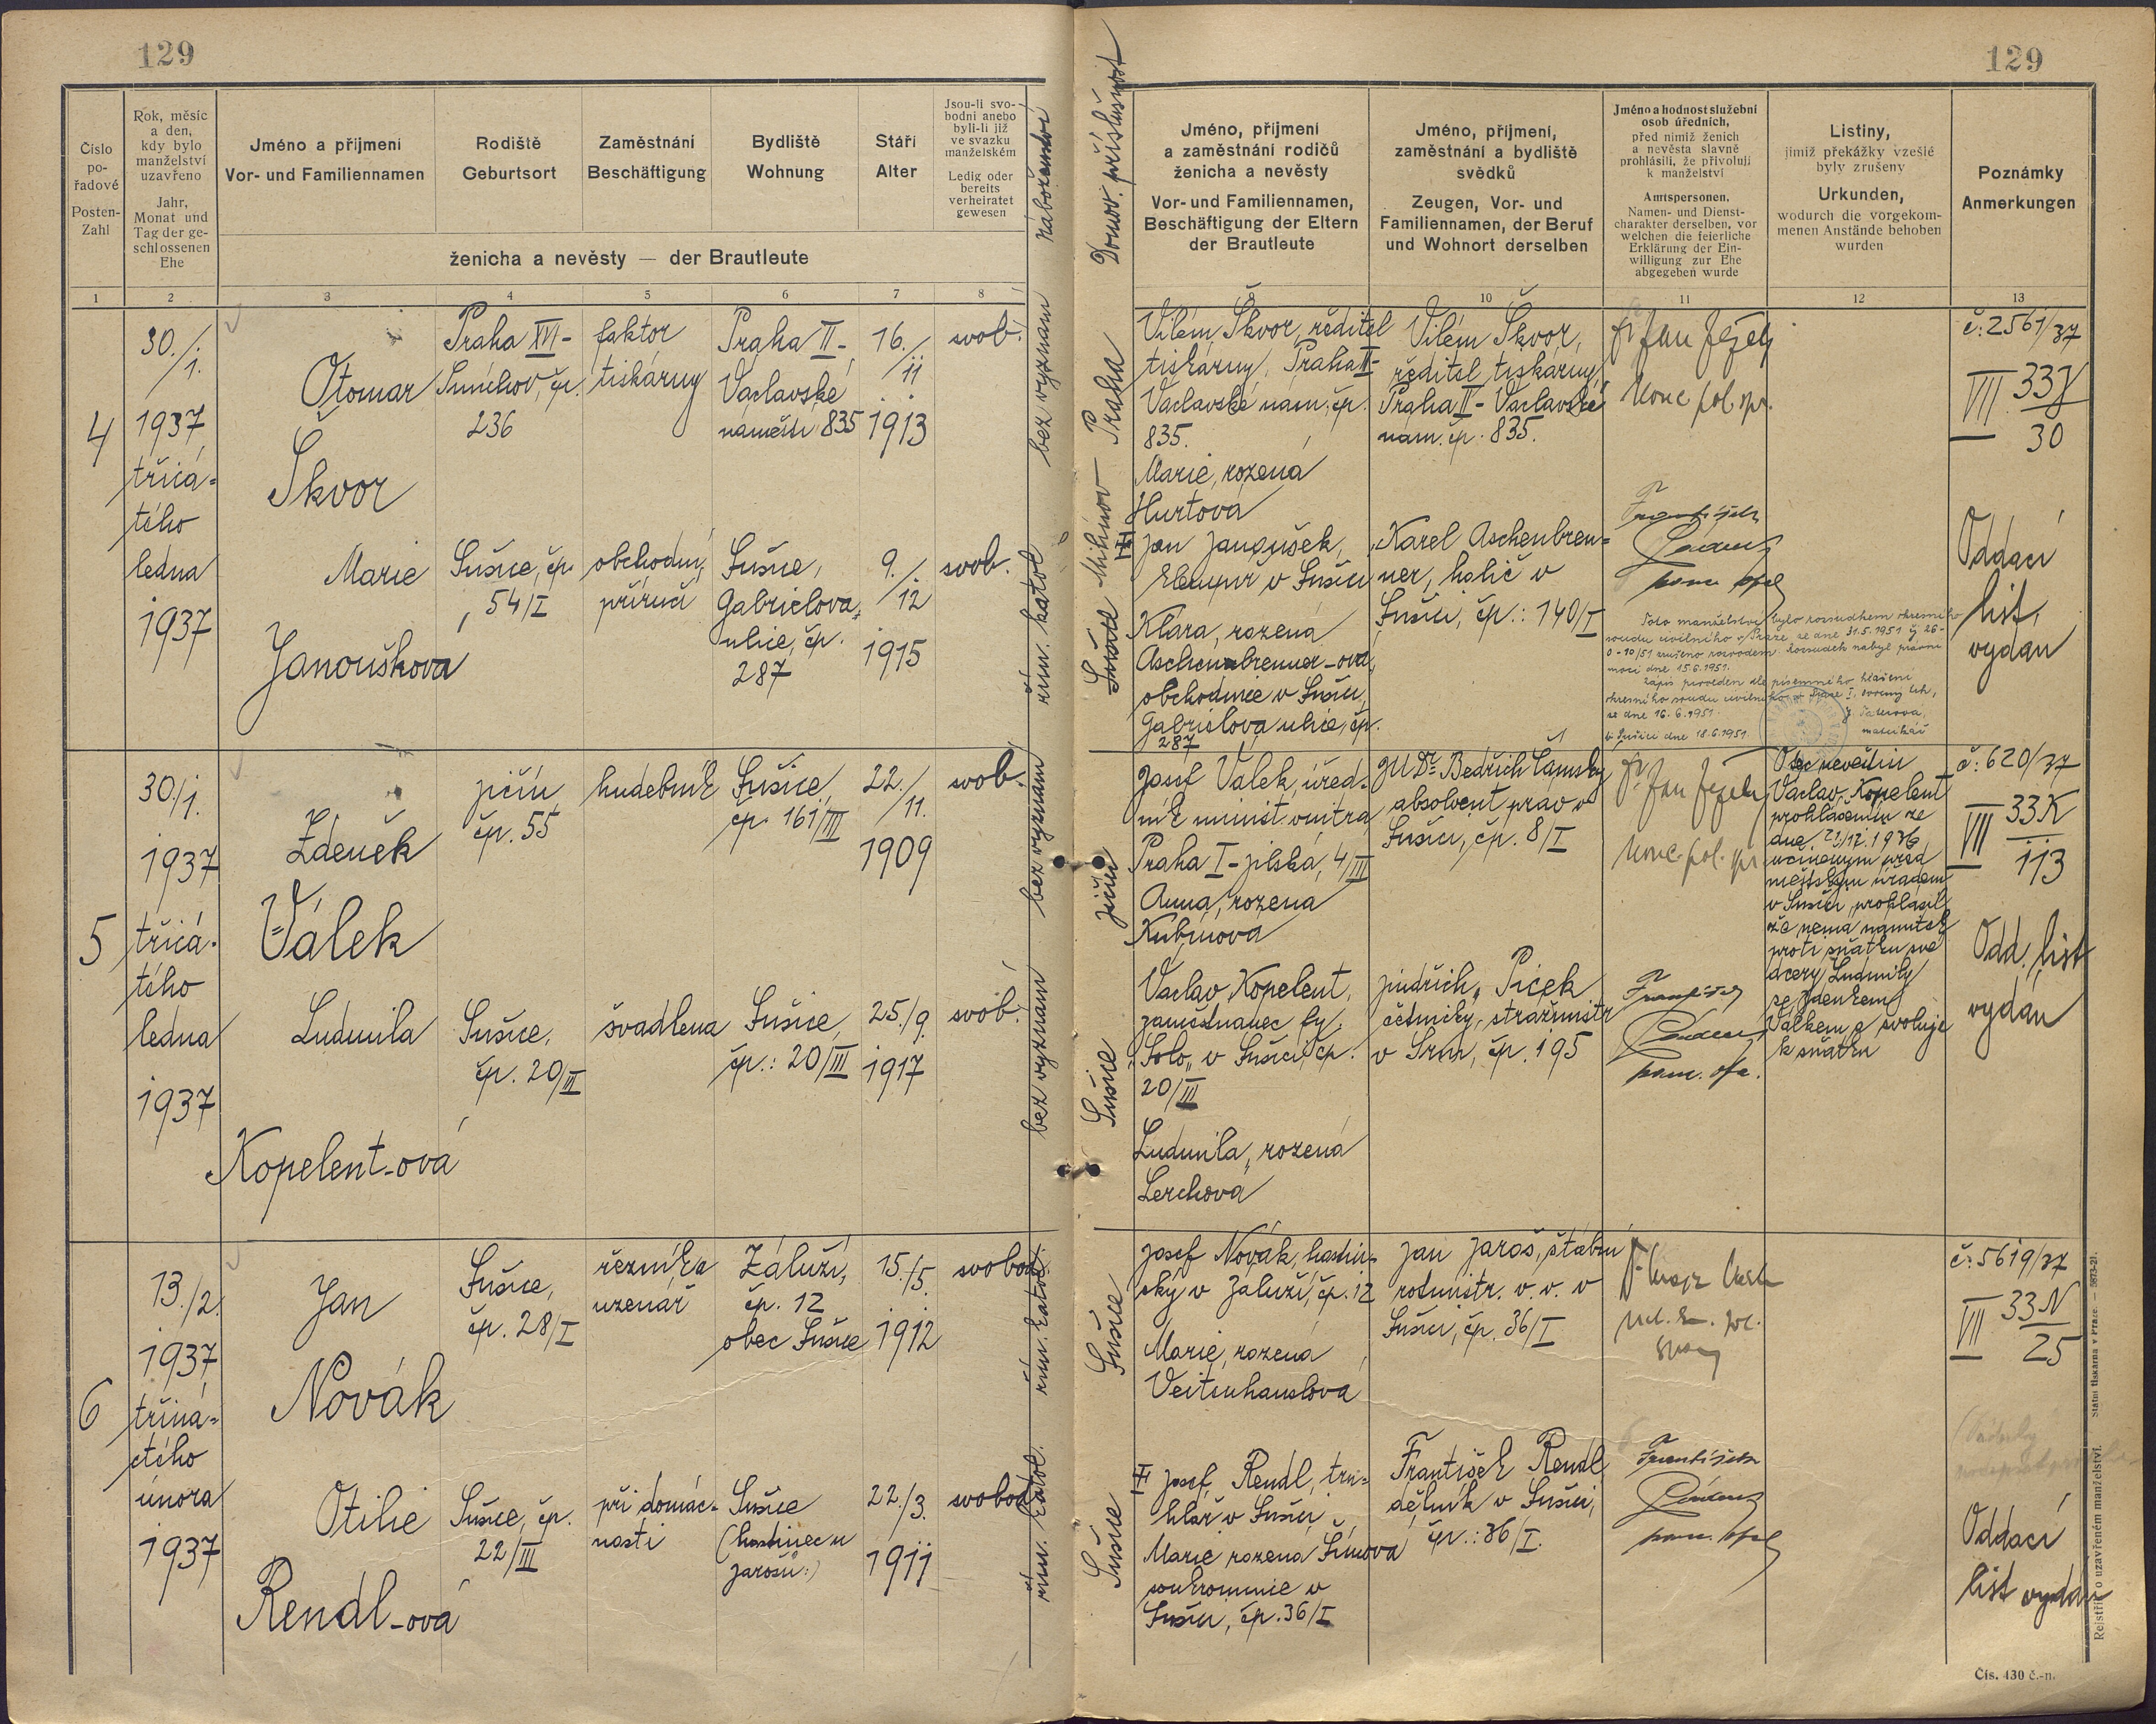 129
129
Číslo
po-
řadové
Posten-
Zahl
Rok, měsíc
a den,
kdy bylo
manželství
uzavřeno
Jahr,
Monat und
Tag der ge-
schlossenen
Ehe
Jméno a příjmení
Vor- und Familiennamen
Rodiště
Geburtsort
Zaměstnání
Beschäftigung
Bydliště
Wohnung
Stáří
Alter
Jsou-li svo-
bodni anebo
byli-li již
ve svazku
manželském
Ledig oder
bereits
verheiratet
gewesen
ženicha a nevěsty — der Brautleute
náboženství
Domov. příslušnost
Jméno, příjmení
a zaměstnání rodičů
ženicha a nevěsty
Vor- und Familiennamen,
Beschäftigung der Eltern
der Brautleute
Jméno, příjmení,
zaměstnání a bydliště
svědků
Zeugen, Vor- und
Familiennamen, der Beruf
und Wohnort derselben
Jméno a hodnost služební
osob úředních,
před nimiž ženich
a nevěsta slavně
prohlásili, že přivolují
k manželství
Amtspersonen,
Namen- und Dienst-
charakter derselben, vor
welchen die feierliche
Erklärung der Ein-
willigung zur Ehe
abgegeben wurde
Listiny,
jimiž překážky vzešlé
byly zrušeny
Urkunden,
wodurch die vorgekom-
menen Anstände behoben
wurden
Poznámky
Anmerkungen
1 2 3 4 5 6 7 8 10 11 12 13
4
30./
/1.
1937
třicá-
tého
ledna
1937
Otomar
Škvor
Praha XVI-
Smíchov, čp.
236
faktor
tiskárny
Praha II-
Václavské
náměstí 835
16./
/11
1913
svob.
bez vyznání
Praha
Vilém Škvor, ředitel
tiskárny, Praha II-
Václavské nám. čp.
835.
Marie, rozená
Hurtová
Vilém Škvor,
ředitel tiskárny
Praha II- Václavské
nám. čp. 835.
Jan Ježek
č: 2561/37
VII 33J
30
Marie
Janoušková
Sušice, čp.
54/I
obchodní
příručí
Sušice,
Gabrielova
ulice, čp.
287
9./
/12
1915
svob.
řím. katol.
Sušice
Jan Janoušek,
klempíř v Sušici
Klára, rozená
Aschenbrenner-ová,
obchodnice v Sušici,
Gabrielova ulice, čp.
287
Karel Aschenbren-
ner, holič v
Sušici, čp.: 140/I
František
Toto manželství bylo rozsudkem okresního
soudu civilního v Praze, ze dne 31.5.1951
0-10/51 zrušeno rozvodem. Rozsudek nabyl právní
moci dne 15.6.1951.
Zápis proveden dle písemného hlášení
okresního soudu civilního v Praze I.
ze dne 16.6.1951.
V Sušici dne 18.6.1951
matrikář
Oddací
list
vydán
5
30./1.
1937
třicá-
tého
ledna
1937
Zdeněk
Válek
Jičín
čp. 55
hudebník
Sušice
čp. 161/III
22./
/11.
1909
svob.
bez vyznání
Jičín
Josef Válek, úřed-
ník minist. vnitra
Praha I-Jilská, 4/III
Anna, rozená
Kubínová
JUDr. Bedřich
absolvent práv v
Sušici, čp. 8/I
Jan Ježek
Otec nevěstin
Václav Kopelent
prohlášením ze
dne 21/12. 1936
učiněným před
městským úřadem
v Sušici prohlásil
že nemá námitek
proti sňatku své
dcery Ludmily
se Zdeňkem
Válkem a svoluje
k sňatku
č: 620/37
VII 33K
113
Ludmila
Kopelent-ová
Sušice,
čp. 20/III
švadlena
Sušice,
čp.: 20/III
25./9.
1917
svob.
bez vyznání
Sušice
Václav Kopelent,
zaměstnanec fy.
„Solo„ v Sušici, čp.
20/III
Ludmila, rozená
Lerchová
Jindřich Picek
četnický strážmistr
v Srní, čp. 195
František
Odd. list
vydán
6
13./2.
1937
třiná-
ctého
února
1937
Jan
Novák
Sušice,
čp. 28/I
řezník a
uzenář
Záluží,
čp. 12
obec Sušice
15./5.
1912
svobod.
řím. katol.
Sušice
Josef Novák, hostin-
ský v Záluží, čp. 12
Marie, rozená
Veitenhanslová
Jan Jaroš, štábní
rotmistr. v. v. v
Sušici, čp. 36/I
č: 5619/37
VII 33N
25
Otilie
Rendl-ová
Sušice, čp.
22/III
při domác-
nosti
Sušice
(hostinec u
Jarošů:)
22./3.
1911
svobod.
řím. katol.
Sušice
Josef Rendl, tru-
hlář v Sušici
Marie rozená Šímová
soukromnice v
Sušici, čp. 36/I
František Rendl
dělník v Sušici,
čp.: 36/I.
František
Oddací
list vydán
Rejstřík o uzavřeném manželství. Státní tiskárna v Praze. — 5873-21.
Čís. 430 č.-n.